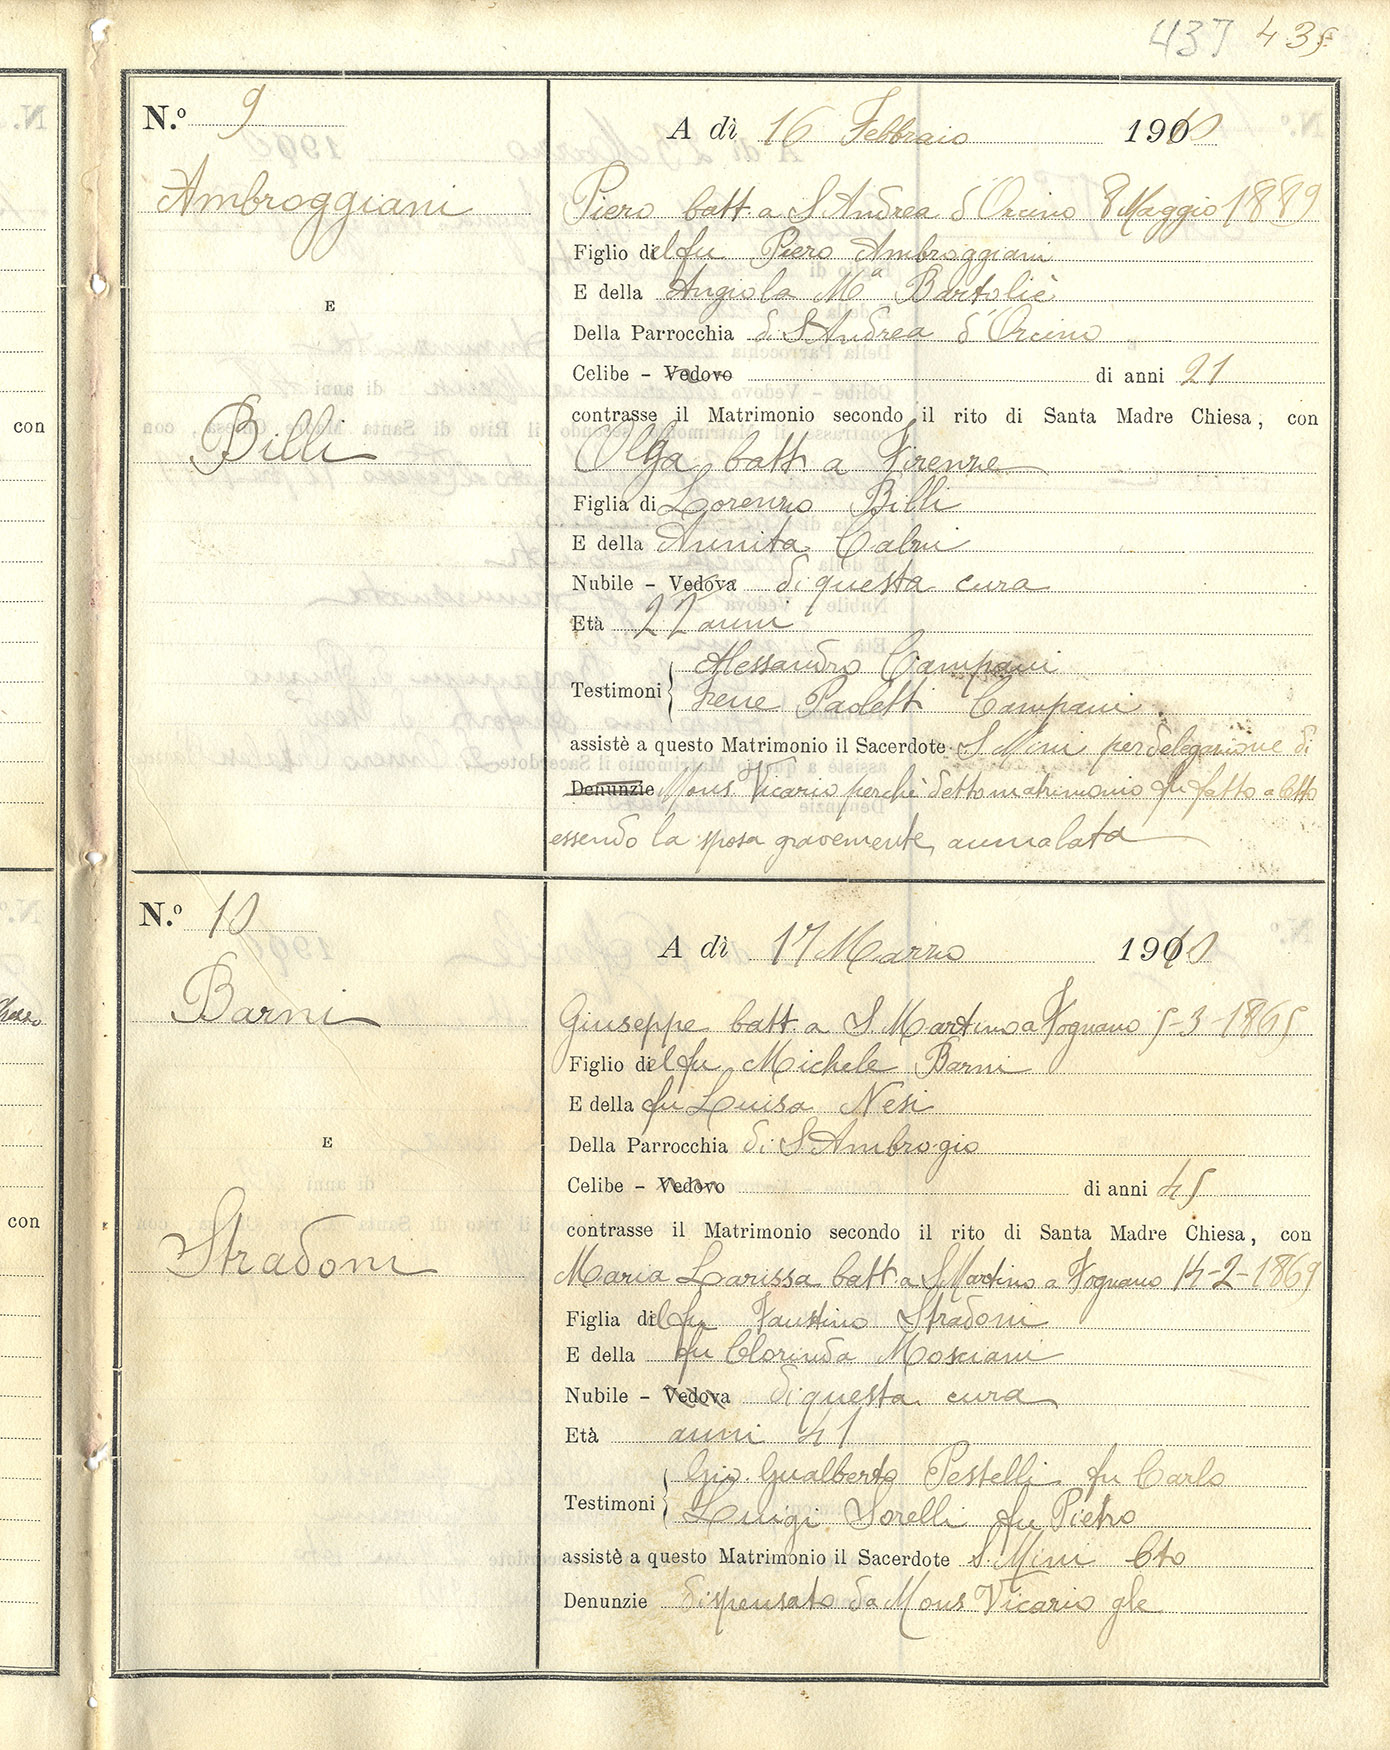 437 435
N.º 9
A dì 16 Febbraio 1910
Ambroggiani
Piero batt. a S Andrea d'Orcino 8 Maggio 1889
Figlio del fu Piero Ambroggiani
E della Angiola Mª
E
Della Parrocchia di S Andrea d'Orcino
Celibe – Vedovo di anni 21
contrasse il Matrimonio secondo il rito di Santa Madre Chiesa, con
Billi
Olga batt. a Firenze
Figlia di Lorenzo Billi
E della Annita
Nubile – Vedova di questa cura
Età 22 anni
Testimoni Alessandro Campani
Irene Paoletti Campani
assistè a questo Matrimonio il Sacerdote S Mini per delegazione di
Denunzie Mons Vicario perchè detto matrimonio fu fatto a letto
essendo la sposa gravemente ammalata
N.º 10
A dì 17 Marzo 1910
Barni
Giuseppe batt. a S. Martino a Fognano 5-3-1865
Figlio del fu Michele Barni
E della fu Luisa Nesi
E
Della Parrocchia di S. Ambrogio
Celibe – Vedovo di anni 45
contrasse il Matrimonio secondo il rito di Santa Madre Chiesa, con
Stradoni
Maria Larissa batt a S Martino a Fognano 14-2-1869
Figlia del fu Faustino Stradoni
E della fu Clorinda Mosciani
Nubile – Vedova di questa cura
Età anni 41
Testimoni Gio. Gualberto Pestelli fu Carlo
Luigi Sorelli fu Pietro
assistè a questo Matrimonio il Sacerdote S. Mini
Denunzie dispensato da Mons Vicario gle
con
con